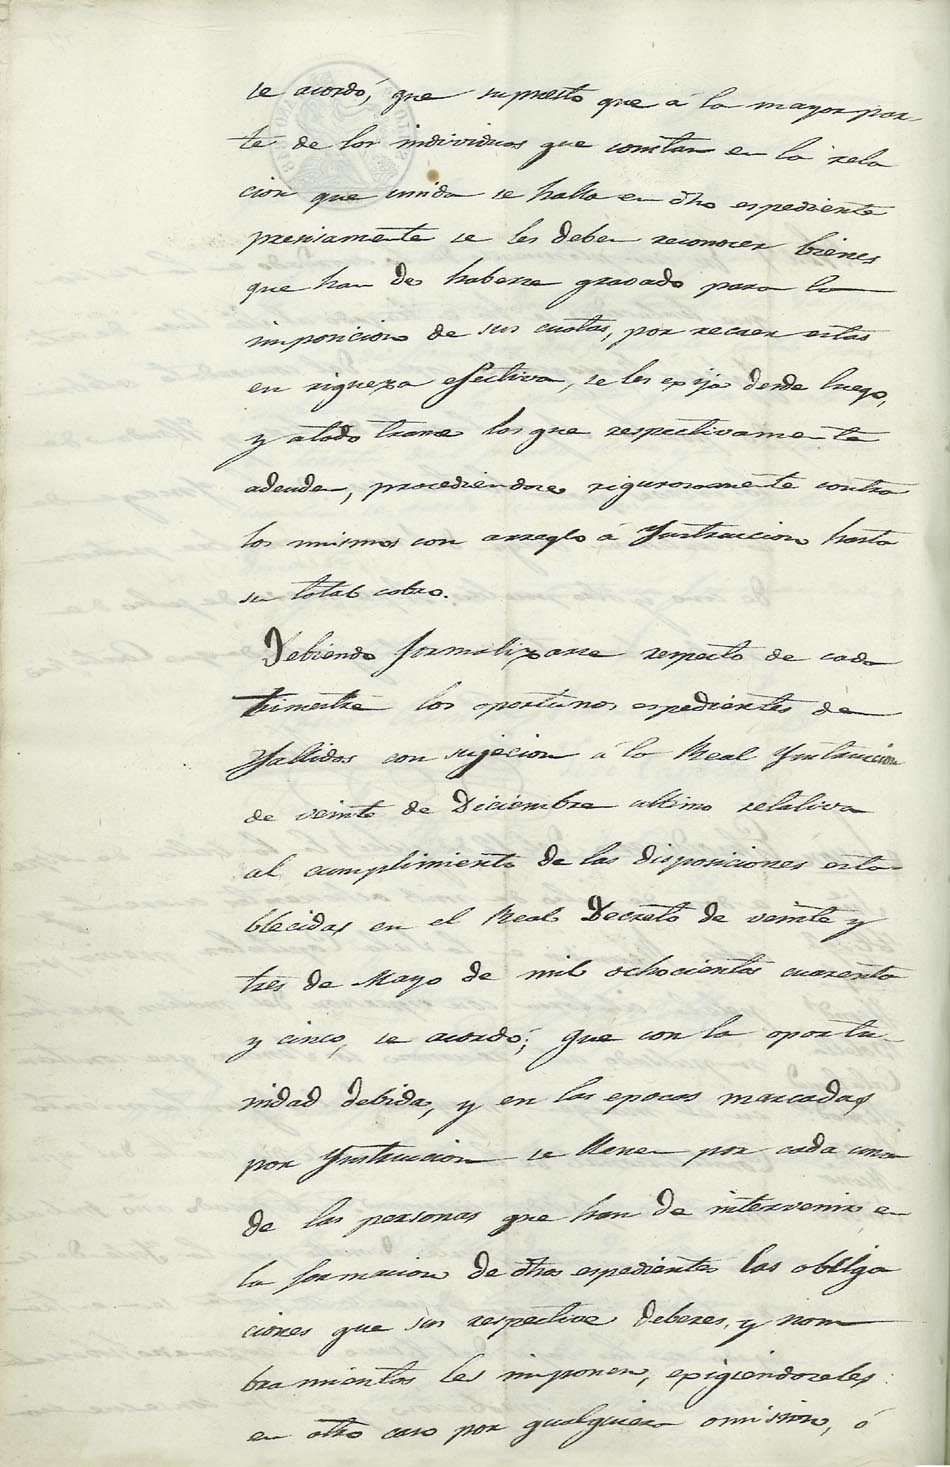 se acordó, que supuesto que á la mayor par-
te de los individuos que constan en la rela
cion que unida se halla en dho espediente
precisamente se les deben reconocer bienes
que han de haberse gravado para la
imposicion de sus cuotas, por recaer estas
en riqueza efectiva, se les exija desde luego,
y atodo trance los que respectivamente
adeuden, procediendose rigurosamente contra
los mismos con arreglo á Ynstruccion hasta
su total cobro.
Debiendo formalizarse respecto de cada
trimestre los oportunos espedientes de
Fallidos con sujecion á la Real Ynstruccion
de veinte de Diciembre ultimo relativa
al cumplimiento de las disposiciones esta-
blecidas en el Real Decreto de veinte y
tres de Mayo de mil ochocientos cuarenta
y cinco, se acordó; que con la oportu-
nidad debida, y en las epocas marcadas
por Ynstruccion se llenen por cada una
de las personas que han de intervenir en
la formacion de dhos espedientes las obliga
ciones que sus respective deberes, y nom
bramientos les imponen, exigiendoseles
en otro caso por qualquiera omision, ó